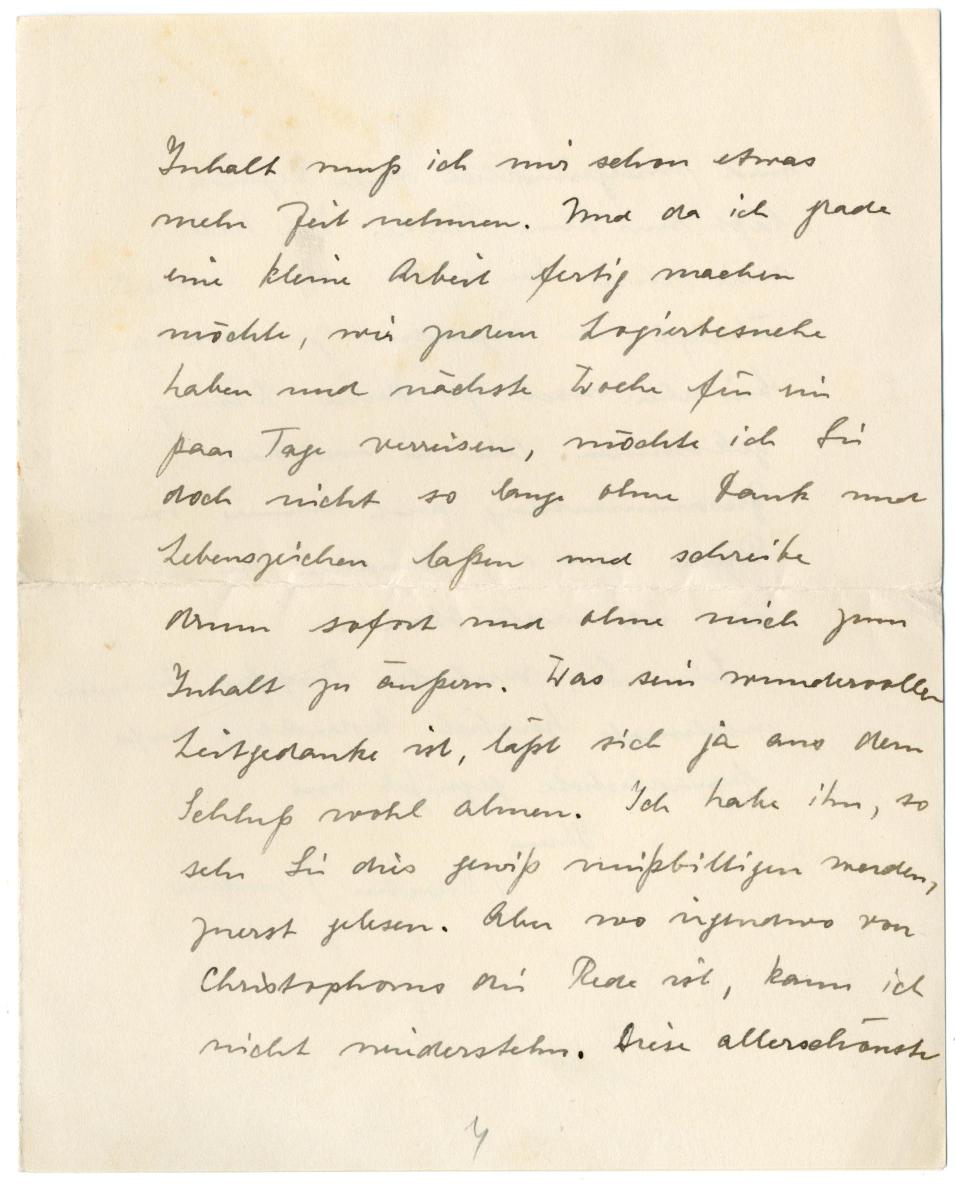 Inhalt muß ich mir schon etwas
mehr Zeit nehmen. Und da ich grade
eine kleine Arbeit fertig machen
möchte, wir zudem Logierbesuche
haben und nächste Woche für ein
paar Tage verreisen, möchte ich Sie
doch nicht so lange ohne Dank und
Lebenszeichen laßen und schreibe
drum sofort und ohne mich zum
Inhalt zu äußern. Was sein wundervoller
Leitgedanke ist, läßt sich ja aus dem
Schluß wohl ahnen. Ich habe ihn, so
sehr Sie dies gewiß mißbilligen werden,
zuerst gelesen. Aber wo irgendwo von
Christophorus die Rede ist, kann ich
nicht widerstehn. Diese allerschönste